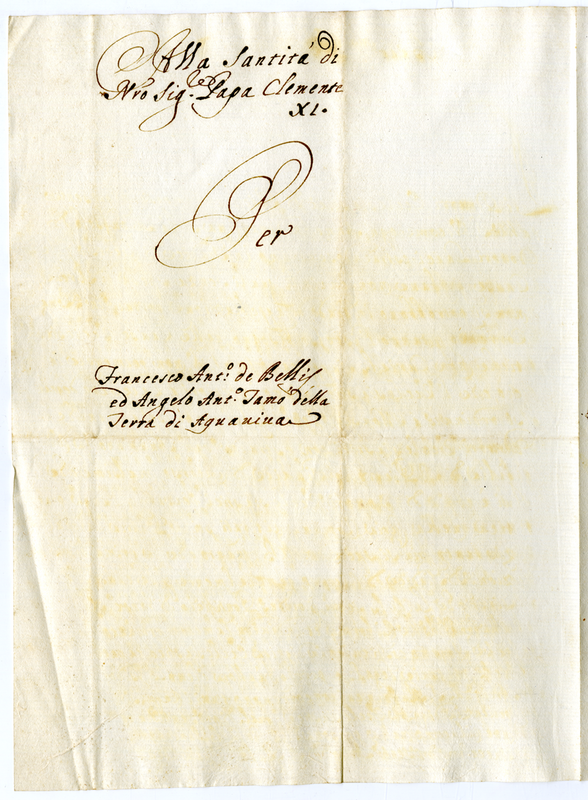 Alla Santità di
Nro Sig.re Papa Clemente
XI.
Per
Francesco Ant.o de Bellis
ed Angelo Ant.o Tamo della
Terra di Aquaviva